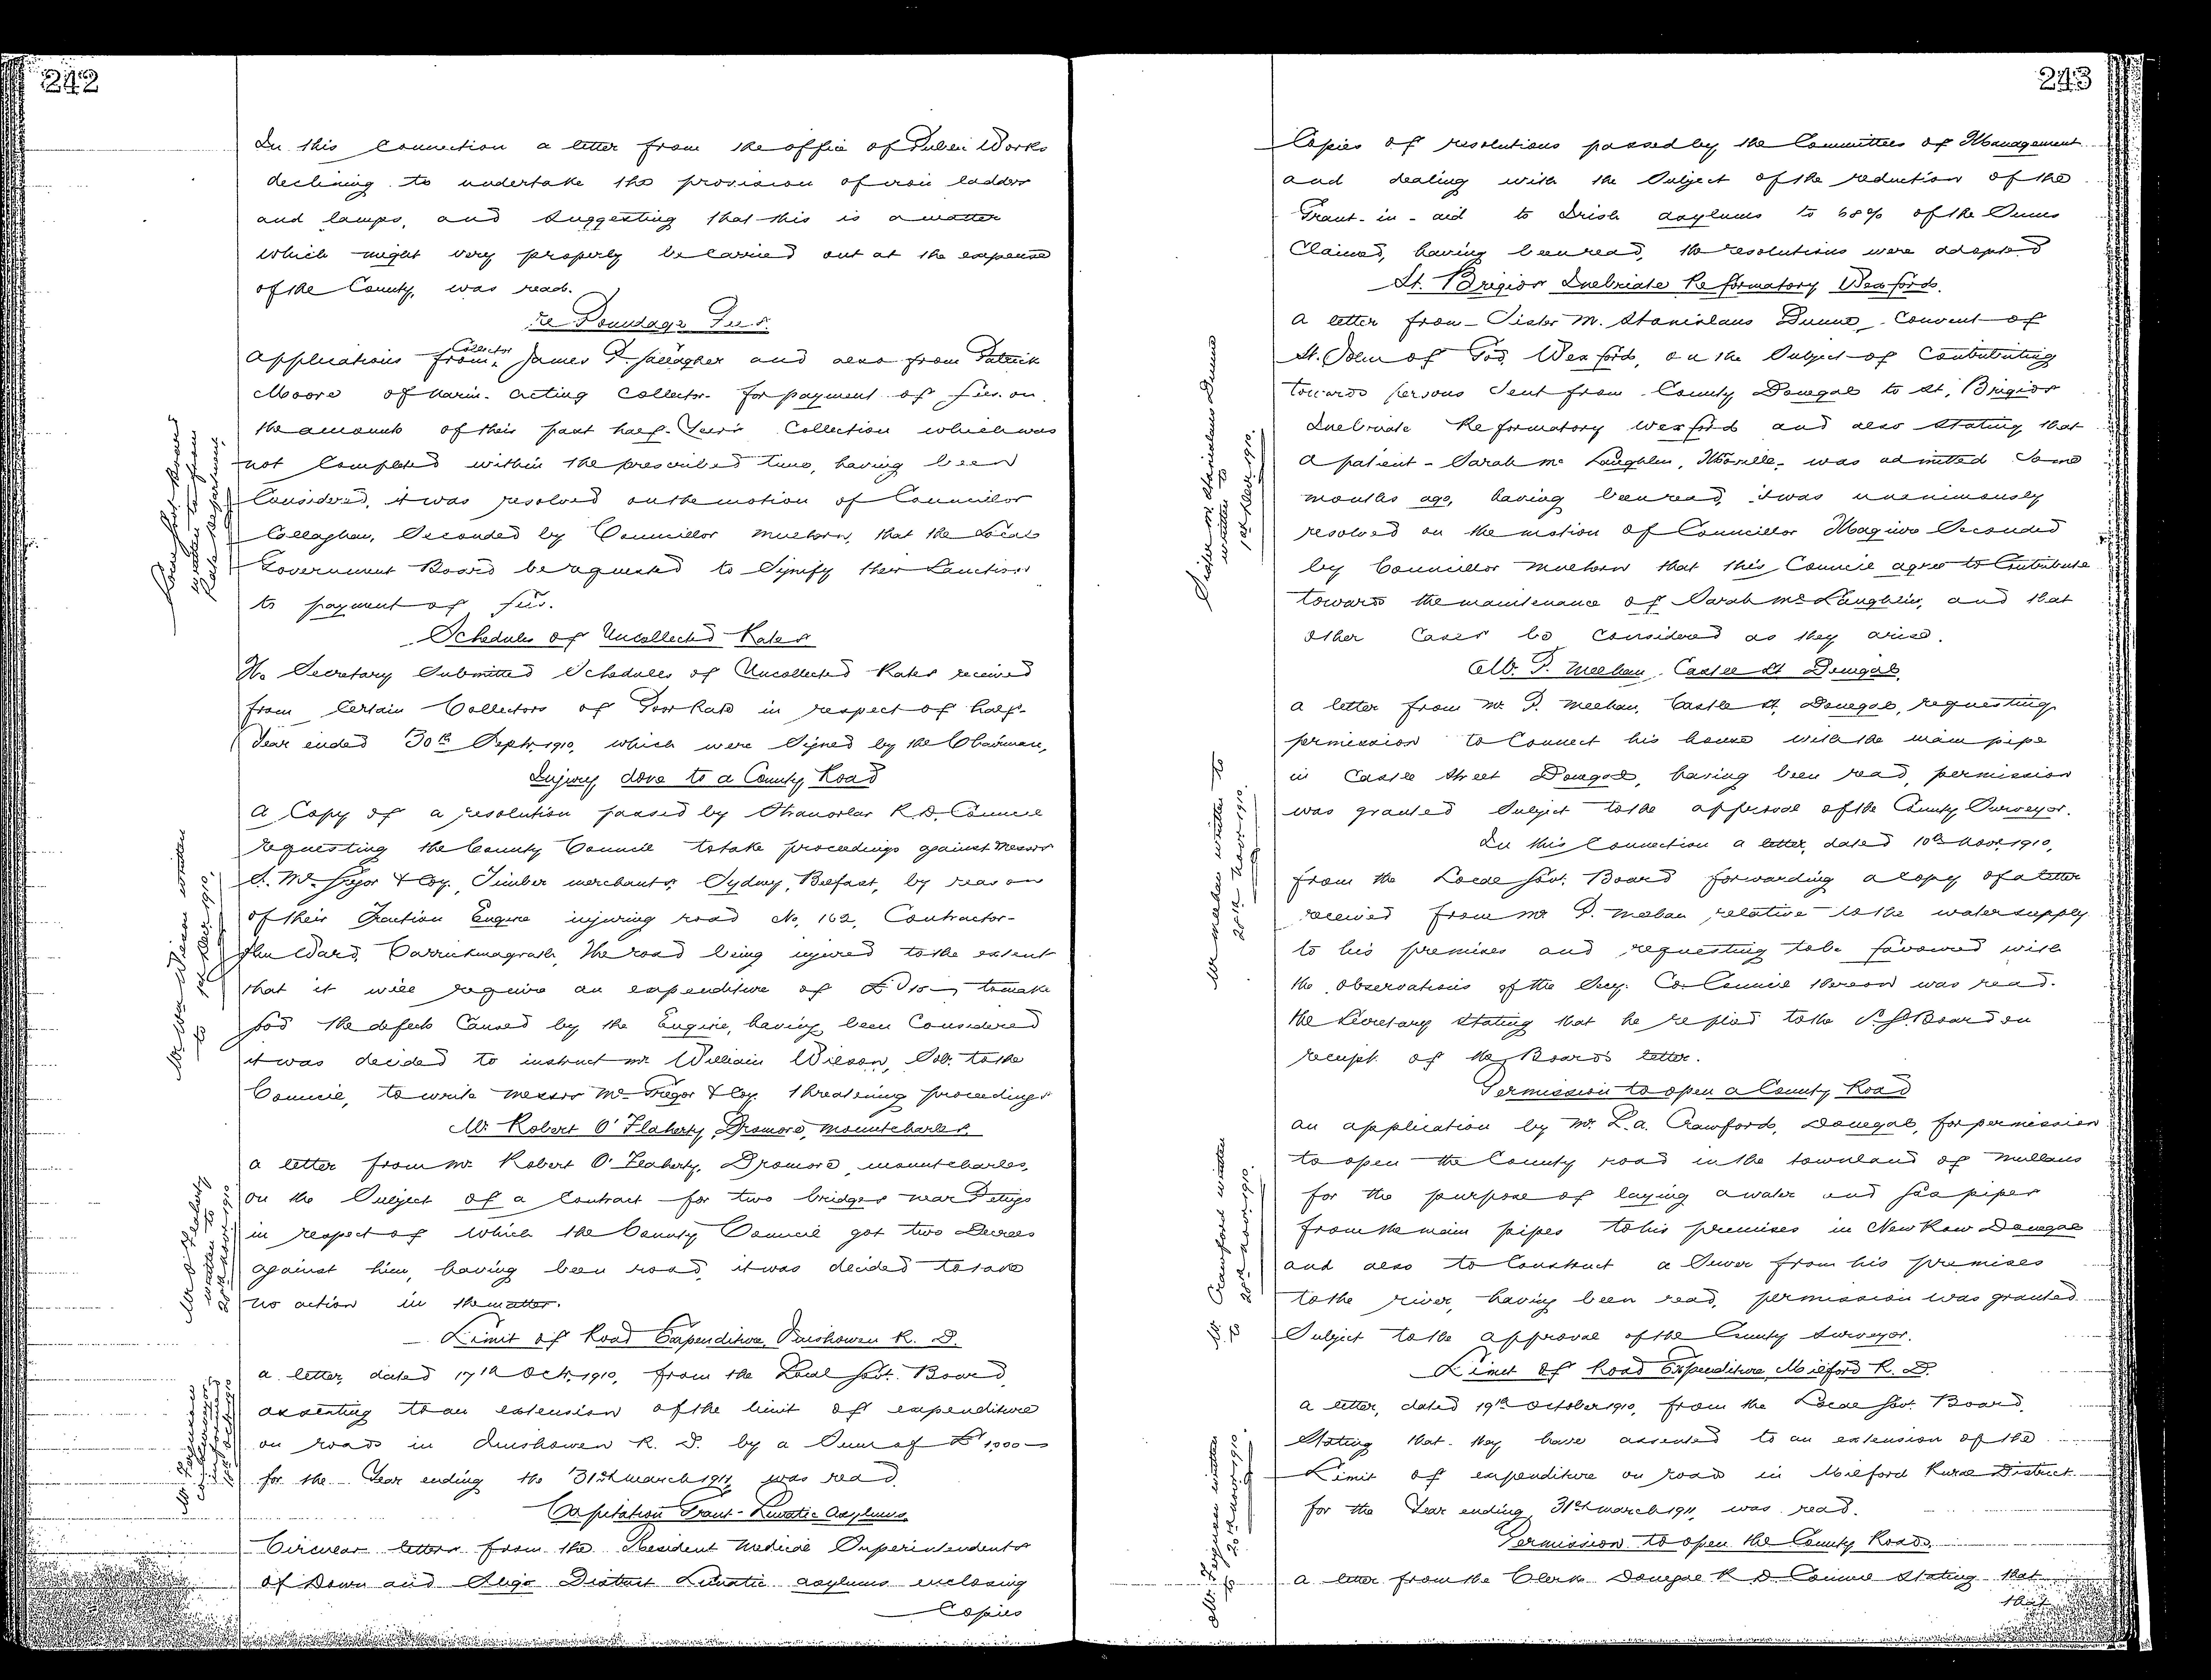 242
In this connection a letter from the office of Public Works
declining to undertake the provision of iron ladder
and lamps, and suggesting that this is a matter
which might very properly be carried out at the expense
of the County, was read.
re Poundage Fees.
Applications from Collector James P. Gallagher and also from Patrick
Moore of Karin. acting Collector for payment of fees on
the amounts of their past half-Year's Collection which was
not completed within the prescribed time, having been
Considered, it was resolved on the motion of Councillor
Callaghan, Seconded by Councillor Mulhern, that the Local
Government Board be requested to Signify their Sanction
to payment of fees.
Schedules of Uncollected Rates
The Secretary Submitted Schedules of Uncollected Rates received
from Certain Collectors of Poor Rate in respect of half-
Year ended 30th Septr. 1910, which were Signed by the Chairman,
Injury done to a County Road
A Copy of a resolution passed by Stranorlar R.D. Council
requesting the County Council to take proceedings against Messrs
S. McGregor & Coy., Timber merchants, Sydney, Belfast, by reason
of their Traction Engine injuring road No. 162, Contractor-
John Ward, Carrickmagrath, the road being injured to the extent
that it will require an expenditure of £ to make
good the defects Caused by the Engine, having been Considered
it was decided to instruct Mr. William Wilson, Solr. to the
Council, to write Messrs McGregor & Coy. threatening proceedings
Mr. Robert O'Flaherty, Dromore, Mountcharles.
a letter from Mr. Robert O'Flaherty, Dromore, Mountcharles,
on the Subject of a Contract for two bridges near Pettigo
in respect of which the County Council got two Decrees
against him, having been read, it was decided to take
no action in the matter.
Limit of Road Expenditure, Inishowen R. D.
a letter, dated 17th Oct. 1910, from the Local Govt. Board,
assenting to an extension of the limit of expenditure
on roads in Inishowen R. D. by a Sum of £1,000
for the Year ending the 31st March 1911, was read
Capitation Grant - Lunatic Asylums.
Circular letters from the Resident Medical Superintendents
of Down and Sligo District Lunatic Asylums enclosing
Copies
Local Govt. Board
written to from
Rate department.
Mr. Wm Wilson written
to 1st Decr. 1910.
Mr. O'Flaherty
written to
243
Copies of resolutions passed by the Committees of Management
and dealing with the Subject of the reduction of the
Grant-in-aid to Irish Asylums to 68% of the Sums
Claimed, having been read, the resolutions were adopted
St. Brigids Inebriate Reformatory Wexford.
a letter from Sister M. Stanislaus Dunne, Convent of
St. John of God, Wexford, on the Subject of Contributing
towards persons Sent from County Donegal to St. Brigids
Inebriate Reformatory Wexford and also Stating that
a patient - Sarah McLaughlin, Moville, was admitted Some
months ago, having been read, it was unanimously
resolved on the motion of Councillor Maguire Seconded
by Councillor Mulhern that this Council agree to Contribute
towards the maintenance of Sarah McLaughlin, and that
other Cases be Considered as they arise.
Mr. P. Meehan, Castle St. Donegal.
a letter from Mr. P. Meehan, Castle St. Donegal, requesting
permission to Connect his house with the main pipe
in Castle Street Donegal, having been read, permission
was granted Subject to the approval of the County Surveyor.
In this Connection a letter, dated 10th Novr. 1910,
from the Local Govt. Board forwarding a copy of a letter
received from Mr. P. Meehan relative to the water supply
to his premises and requesting to be favoured with
the observations of the Secy. Co. Council thereon was read.
the Secretary Stating that he replied to the L. G. Board on
receipt of the Board's letter.
Permission to open a County Road
an application by Mr. L. A. Crawford, Donegal, for permission
to open the County road in the townland of Mullans
for the purpose of laying a water and gas pipes
from the main pipes to his premises in New Row Donegal
and also to Construct a Sewer from his premises
to the river, having been read, permission was granted
Subject to the approval of the County Surveyor.
Limit of Road Expenditure, Milford R. D.
a letter, dated 19th October 1910, from the Local Govt. Board,
Stating that they have assented to an extension of the
Limit of expenditure on roads in Milford Rural District
for the Year ending 31st March 1911, was read.
Permission to open the County Road.
a letter from the Clerk Donegal R D Council Stating that
that
Sister M. Stanislaus Dunne
written to
1st Decr. 1910.
Mr. Meehan written to
Mr. Crawford written
to
written
to